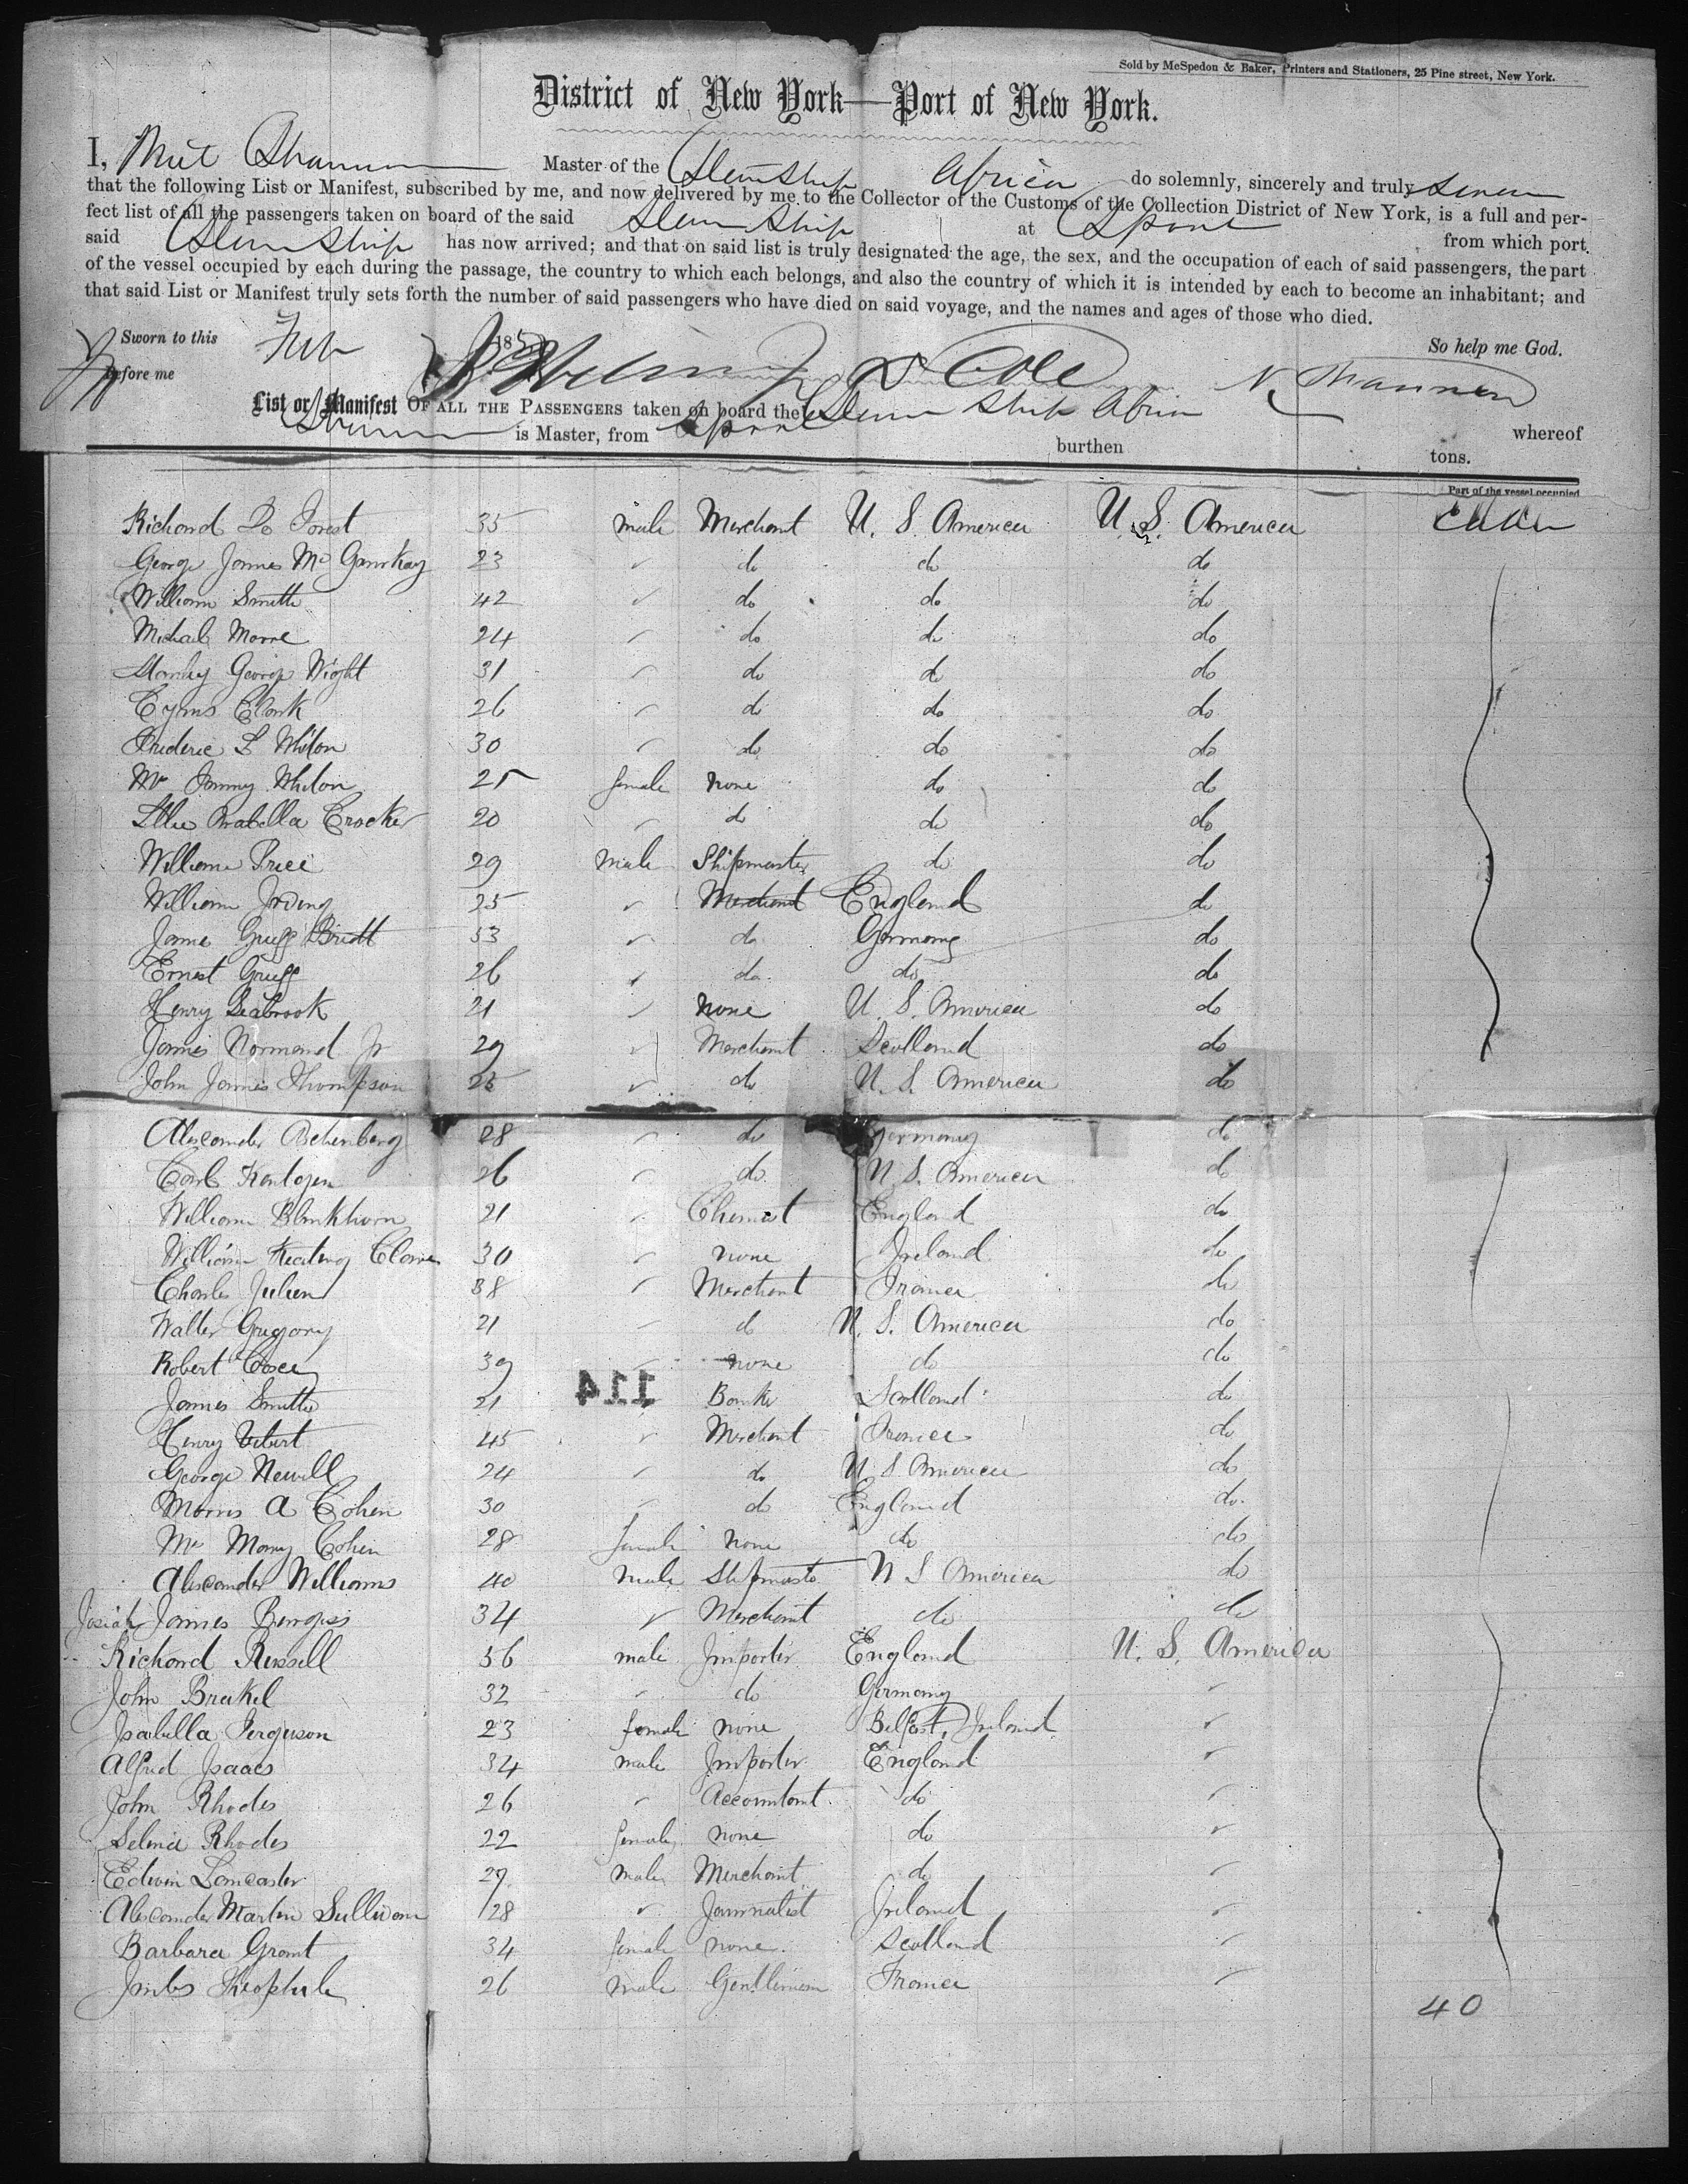 Sold by McSpedon & Baker, Printers and Stationers, 25 Pine street, New York.
District of New York—Port of New York.
I, Master of the Steam Ship Africa do solemnly, sincerely and truly swear
that the following List or Manifest, subscribed by me, and now delivered by me to the Collector of the Customs of the Collection District of New York, is a full and per-
fect list of all the passengers taken on board of the said Steam Ship at Lpool from which port
said Steam Ship has now arrived; and that on said list is truly designated the age, the sex, and the occupation of each of said passengers, the part
of the vessel occupied by each during the passage, the country to which each belongs, and also the country of which it is intended by each to become an inhabitant; and
that said List or Manifest truly sets forth the number of said passengers who have died on said voyage, and the names and ages of those who died.
Sworn to this Feb 185 So help me God.
before me Cole N. Shannon
List or Manifest OF ALL THE PASSENGERS taken on board the Steam Ship Africa whereof
Shannon is Master, from Lpool burthen tons.
Part of the vessel occupied
Richard De Forest 35 male Merchant U. S. America U. S. America
George James Mc 23 " do do do
William Smith 42 " do do do
Michael Moore 24 " do do do
Stanley George Wight 31 " do do do
Cyrus Clark 26 " do do do
Frederic L Whiton 30 " do do do
Mrs Fanny Whiton 25 female none do do
Arabella Crocker 20 " do do do
William Price 29 male Shipmaster do do
William Irving 25 " Merchant England do
53 " do Germany do
Ernest 26 " do do do
Henry Seabrook 21 " none U. S. America do
James Normand Jr 29 " Merchant Scotland do
John James Thompson 25 " do U. S. America do
Alexander 28 " do Germany do
Carl 26 " do U. S. America do
William Blinkhorn 21 " Chemist England do
William Keating Clare 30 " none Ireland do
Charles Julien 38 " Merchant France do
Walter Gregory 21 " do U. S. America do
Robert 39 " none do do
114
James Smith 21 " Banker Scotland do
Henry 45 " Merchant France do
George Newell 24 " do U S America do
Morris A Cohen 30 " do England do
Mrs Mary Cohen 28 female none do do
Alexander Williams 40 male Shipmaster U S America do
Josiah James Burgess 34 " Merchant do do
Richard Russell 56 male Importer England U. S. America
John Brakel 32 " do Germany "
Isabella Ferguson 23 female none Belfast, Ireland "
Alfred Isaacs 34 male Importer England "
John Rhodes 26 " Accountant do "
Selina Rhodes 22 female none do "
Edwin Lancaster 27 male Merchant do "
Alexander Martin Sullivan 28 " Journalist Ireland "
Barbara Grant 34 female none Scotland "
Theophile 26 male Gentleman France "
40